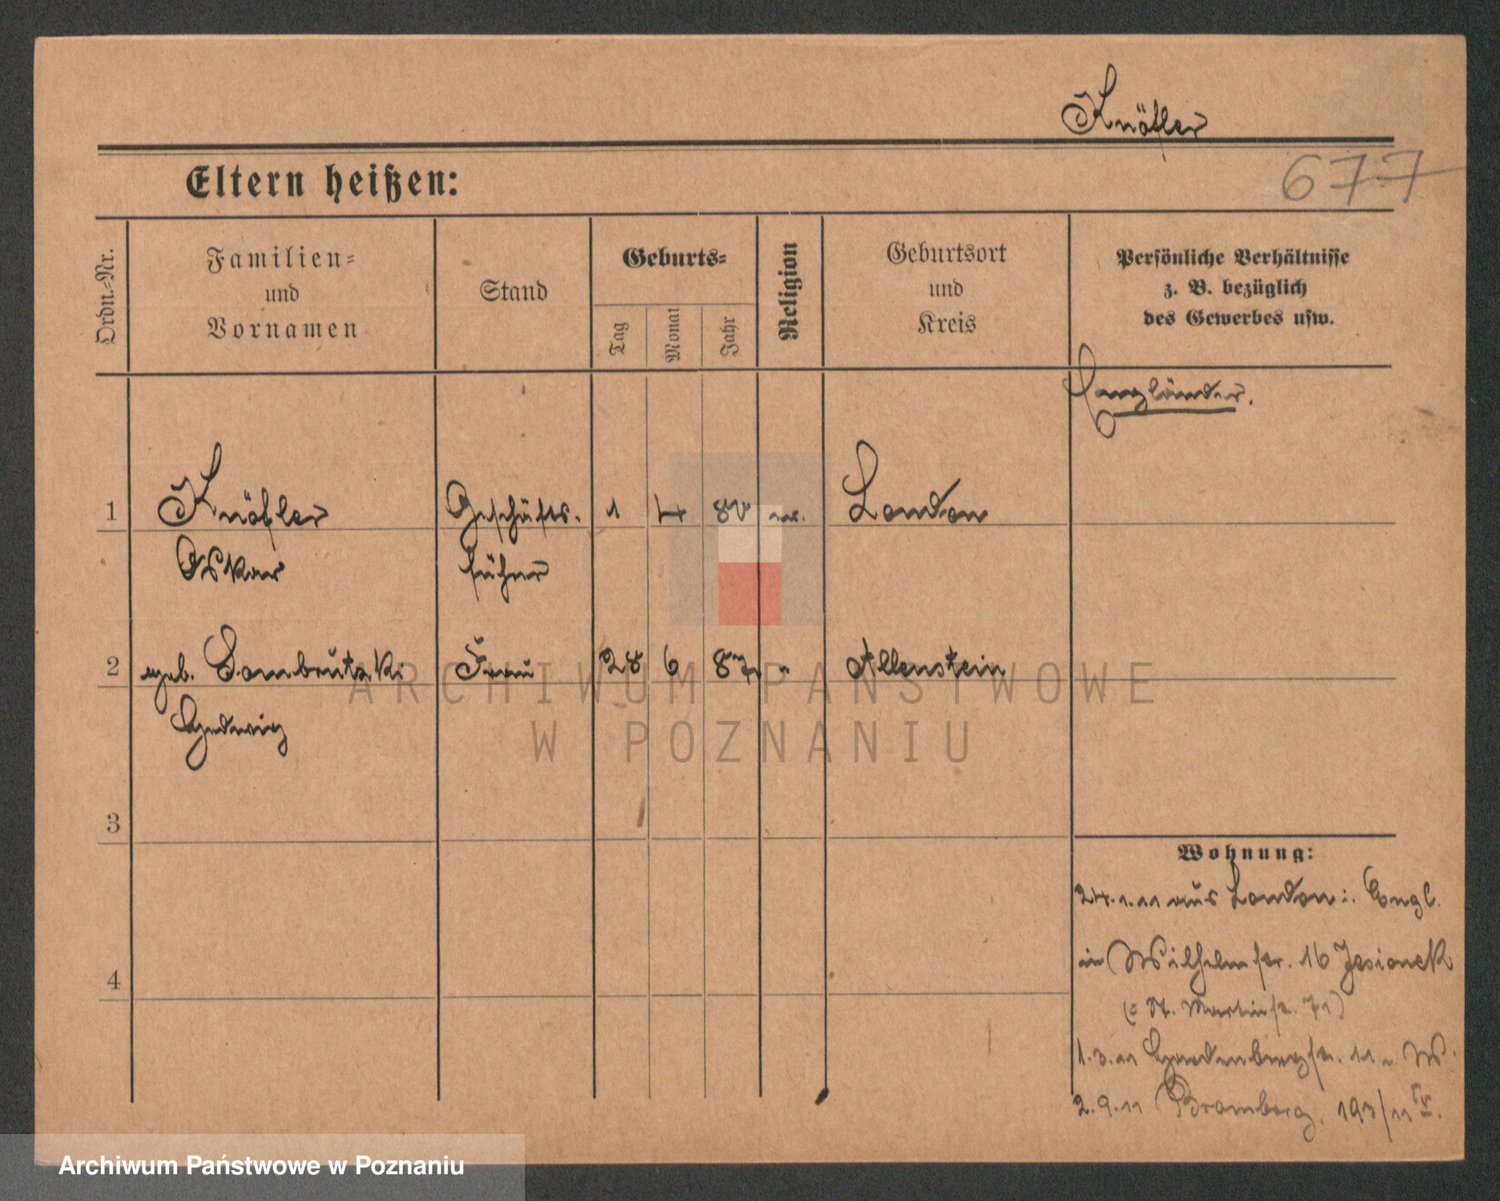 Knöfler
677
Eltern heißen:
Ordn.-Nr.
Familien-
und
Vornamen
Stand
Geburts-
Tag
Monat
Jahr
Religion
Geburtsort
und
Kreis
Persönliche Verhältnisse
z. B. bezüglich
des Gewerbes usw.
Engländer.
1 Knöfler Geschäfts- 1 4 80 London
Oskar führer
2 geb. Dombrutzki Frau 28 6 87 " Allenstein
Hedwig
3
4
Wohnung:
24.1.11 aus London i. Engl.
in Wilhelmstr. 16 Jesionek
(St. Martinstr. 71)
1.3.11 Hardenbergstr. 11 W.
2.9.11 Bromberg. 193/11 IV.
ARCHIWUM PAŃSTWOWE
W POZNANIU
Archiwum Państwowe w Poznaniu